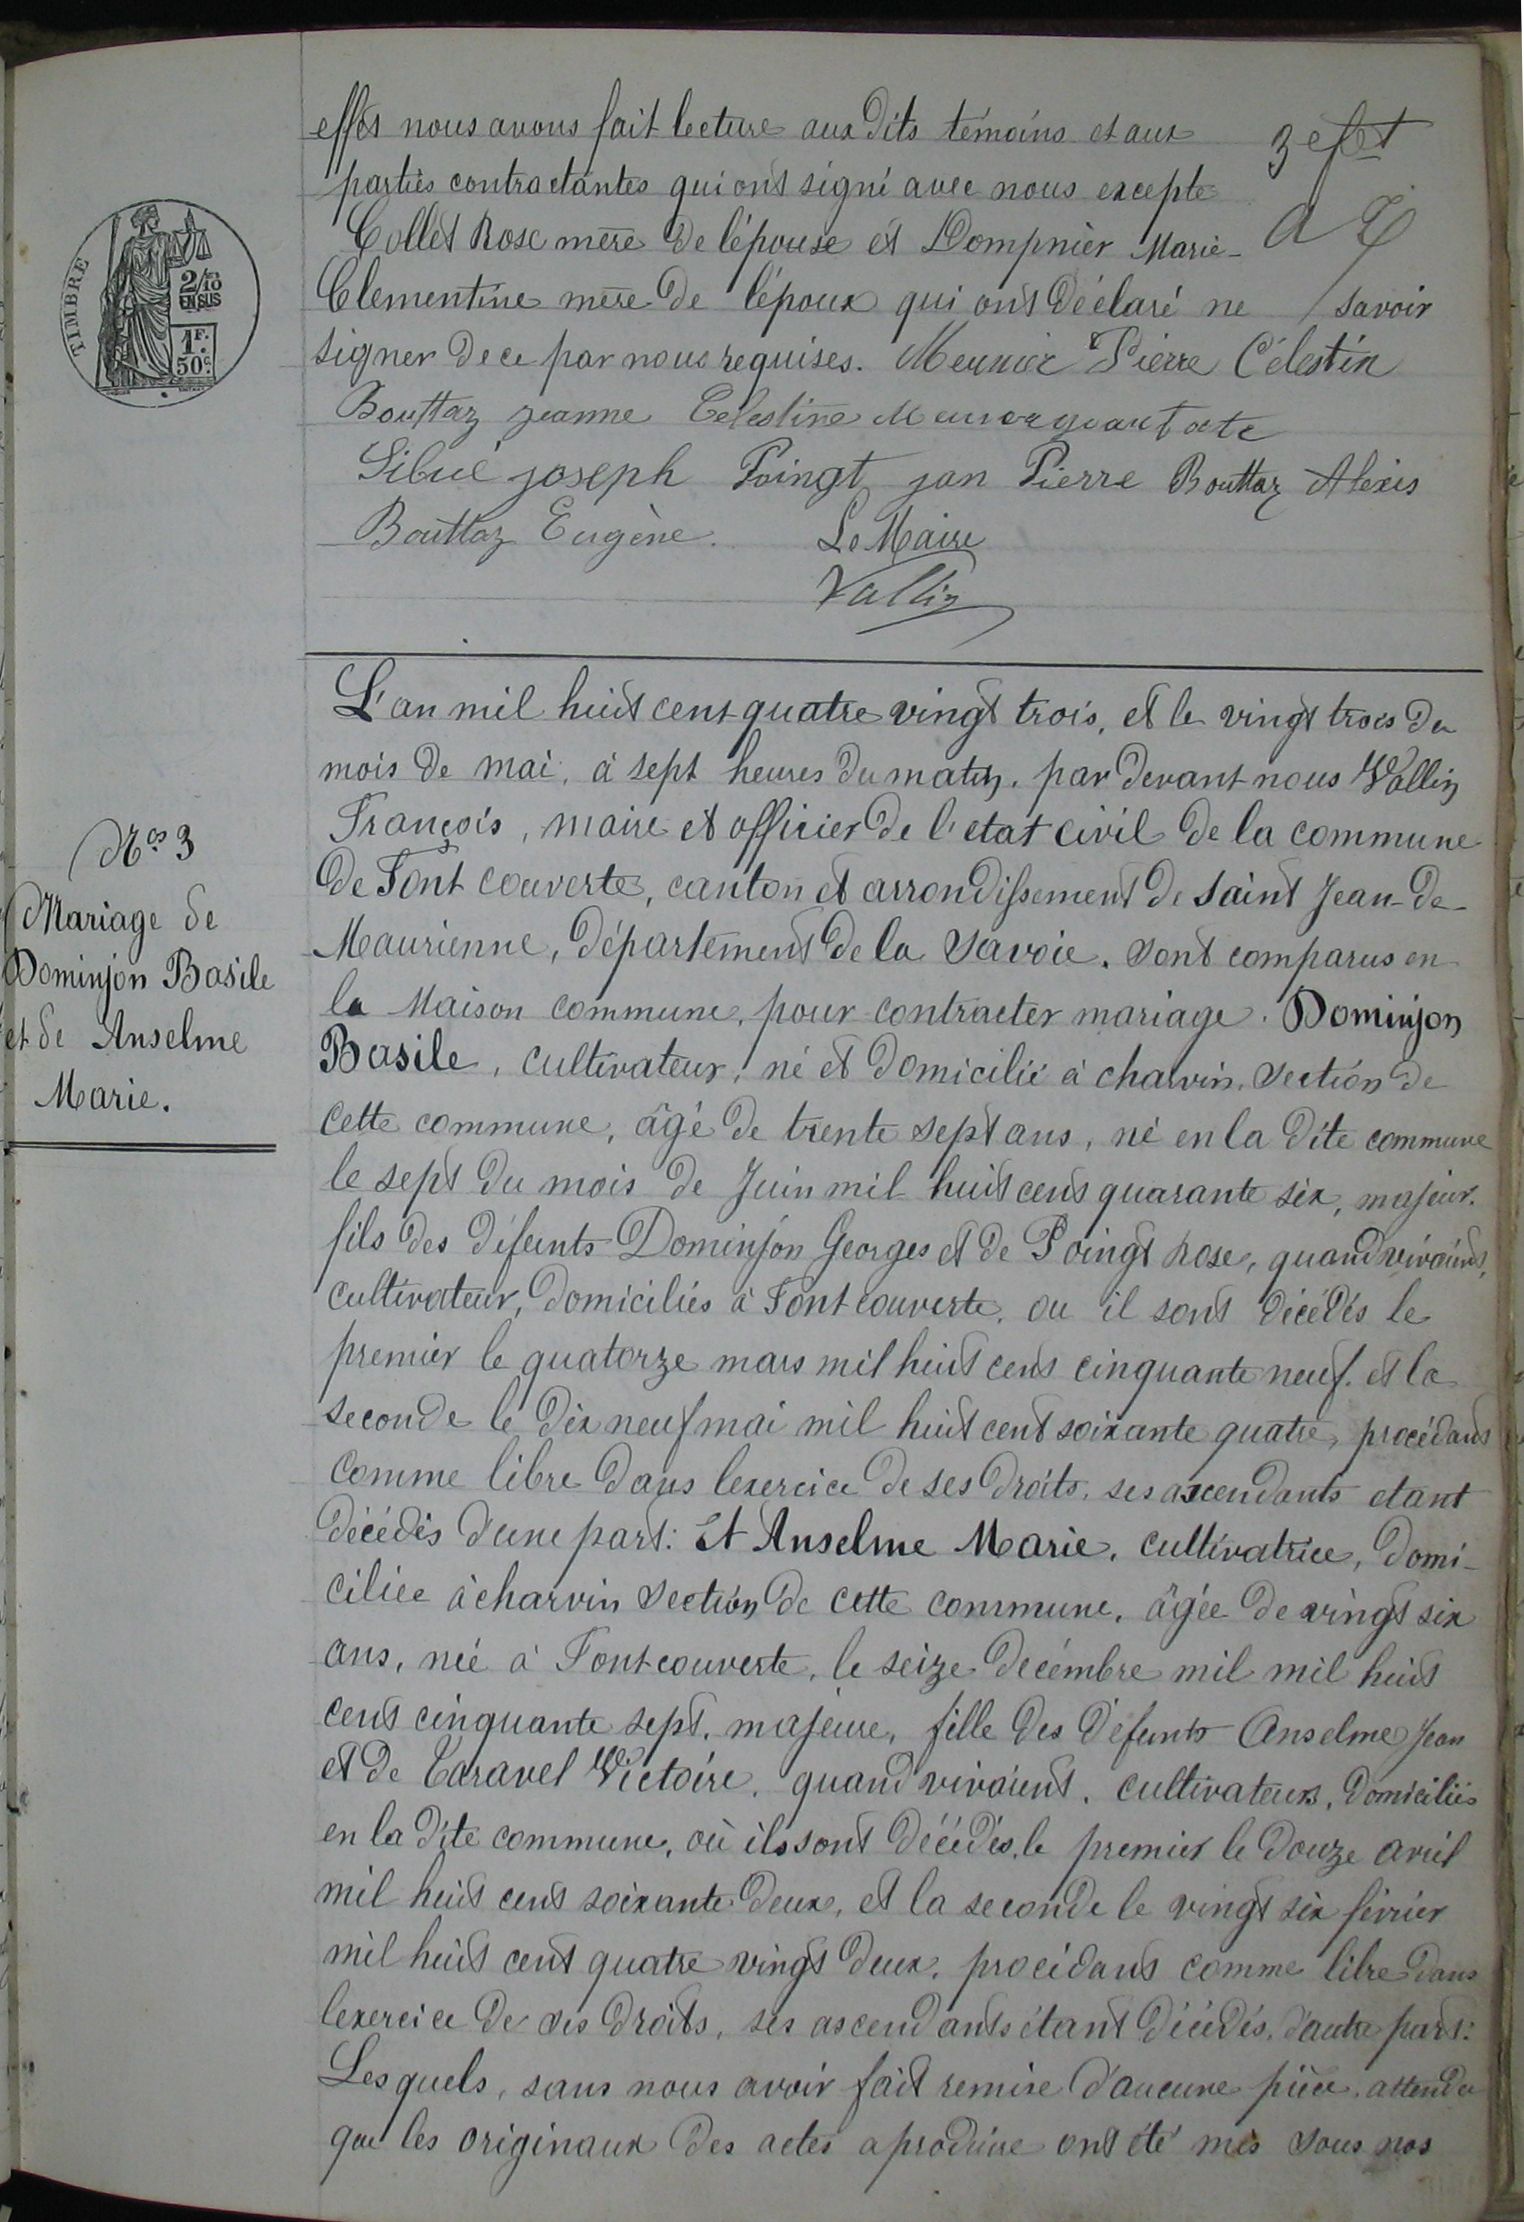 effets nous avons fait lecture aux dits témoins et aux
parties contractantes qui ont signé avec nous excepte
Collet Rose mère de l'épouse et Dompnier Marie-
Clementine mère de l'époux qui ont déclaré ne savoir
signer de ce par nous requises. Meunier Pierre Célestin
Bouttaz jeanne Celestine
Sibué joseph Poingt jan Pierre Bouttaz Alexis
Bouttaz Eugène. Le Maire
Vallin
TIMBRE
2/10
EN SUS
1F.
50c.
Nos 3
Mariage de
Dominjon Basile
et de Anselme
Marie.
L'an mil huit cent quatre vingt trois, et le vingt trois du
mois de mai, à sept heures du matin, par devant nous Vallin
François, maire et officier de l'etat civil de la commune
de Font couverte, canton et arrondissement de Saint Jean-de-
Maurienne, département de la Savoie. Sont comparus en
la Maison commune, pour contracter mariage. Dominjon
Basile, cultivateur, né et domicilié à charvin, Section de
cette commune, âgé de trente sept ans, né en la dite commune
le sept du mois de Juin mil huit cent quarante six, majeur.
fils des défunts Dominjon Georges et de Poingt Rose, quand vivaient,
cultivateur, domiciliés à Font couverte, ou il sont décédés le
premier le quatorze mars mil huit cent cinquante neuf. et la
seconde le dix neuf mai mil huit cent soixante quatre, procédant
comme libre dans lexercice de ses droits, ses ascendants etant
décédés d'une part: Et Anselme Marie, cultivatrice, domi-
ciliée à charvin Section de cette commune, âgée de vingt six
ans, née à Font couverte, le seize decémbre mil mil huit
cent cinquante sept, majeure, fille des défunts Anselme Jean
et de Taravel Victoire, quand vivaient, cultivateurs, domiciliés
en la dite commune, où ils sont décédés, le premier le douze avril
mil huit cent soixante deux, et la seconde le vingt six février
mil huit cent quatre vingt deux, procédant comme libre dans
lexercice de ses droits, ses ascendants étant décédés, d'autre part:
Les quels, sans nous avoir fait remise d'aucune pièce, attendu
que les originaux des actes a produire ont été mis sous nos